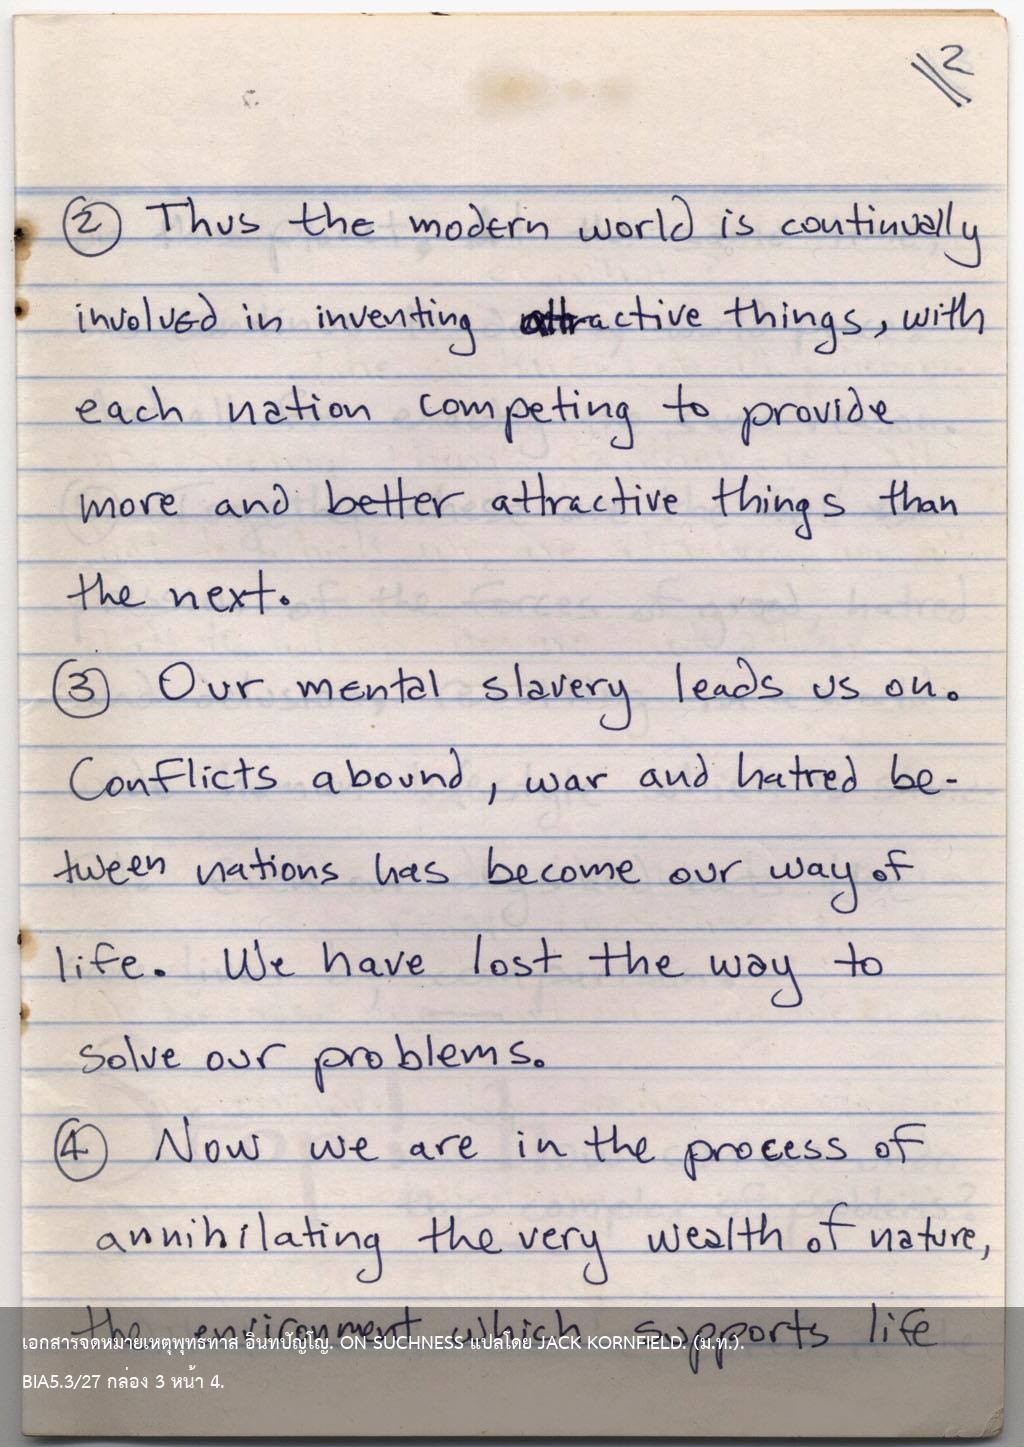 2
② Thus the modern world is continually
involved in inventing attractive things, with
each nation competing to provide
more and better attractive things than
the next.
③ Our mental slavery leads us on.
Conflicts abound, war and hatred be-
tween nations has become our way of
life. We have lost the way to
solve our problems.
④ Now we are in the process of
annihilating the very wealth of nature,
the environment which supports life
เอกสารจดหมายเหตุพุทธทาส อินทปัญโญ. ON SUCHNESS แปลโดย JACK KORNFIELD. (ม.ท.).
BIA5.3/27 กล่อง 3 หน้า 4.